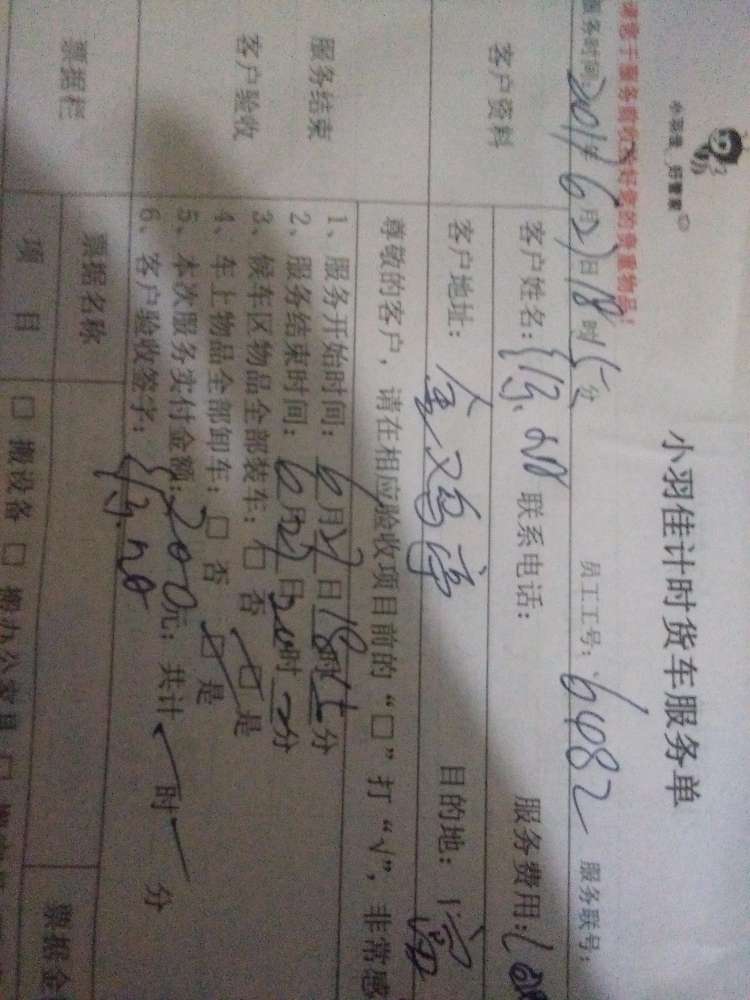 小羽佳 好管家
小羽佳计时货车服务单
请您于服务前收拾好您的贵重物品!
服务时间: 年6月27日18时 分 员工工号: 6482 服务联号:
客户资料
客户姓名: 联系电话: 服务费用:
客户地址: 金鸡亭 目的地:
尊敬的客户,请在相应验收项目前的“□”打“√”,非常感
服务结束
客户验收
1、服务开始时间: 6月27日18时 分
2、服务结束时间: 6月27日20时 分
3、候车区物品全部装车: □ 否 □ 是
4、车上物品全部卸车: □ 否 □ 是
5、本次服务实付金额: 200元; 共计 时 分
6、客户验收签字:
票据栏
票据名称 票据金
项 目 □ 搬设备 □ 搬办公家具 □